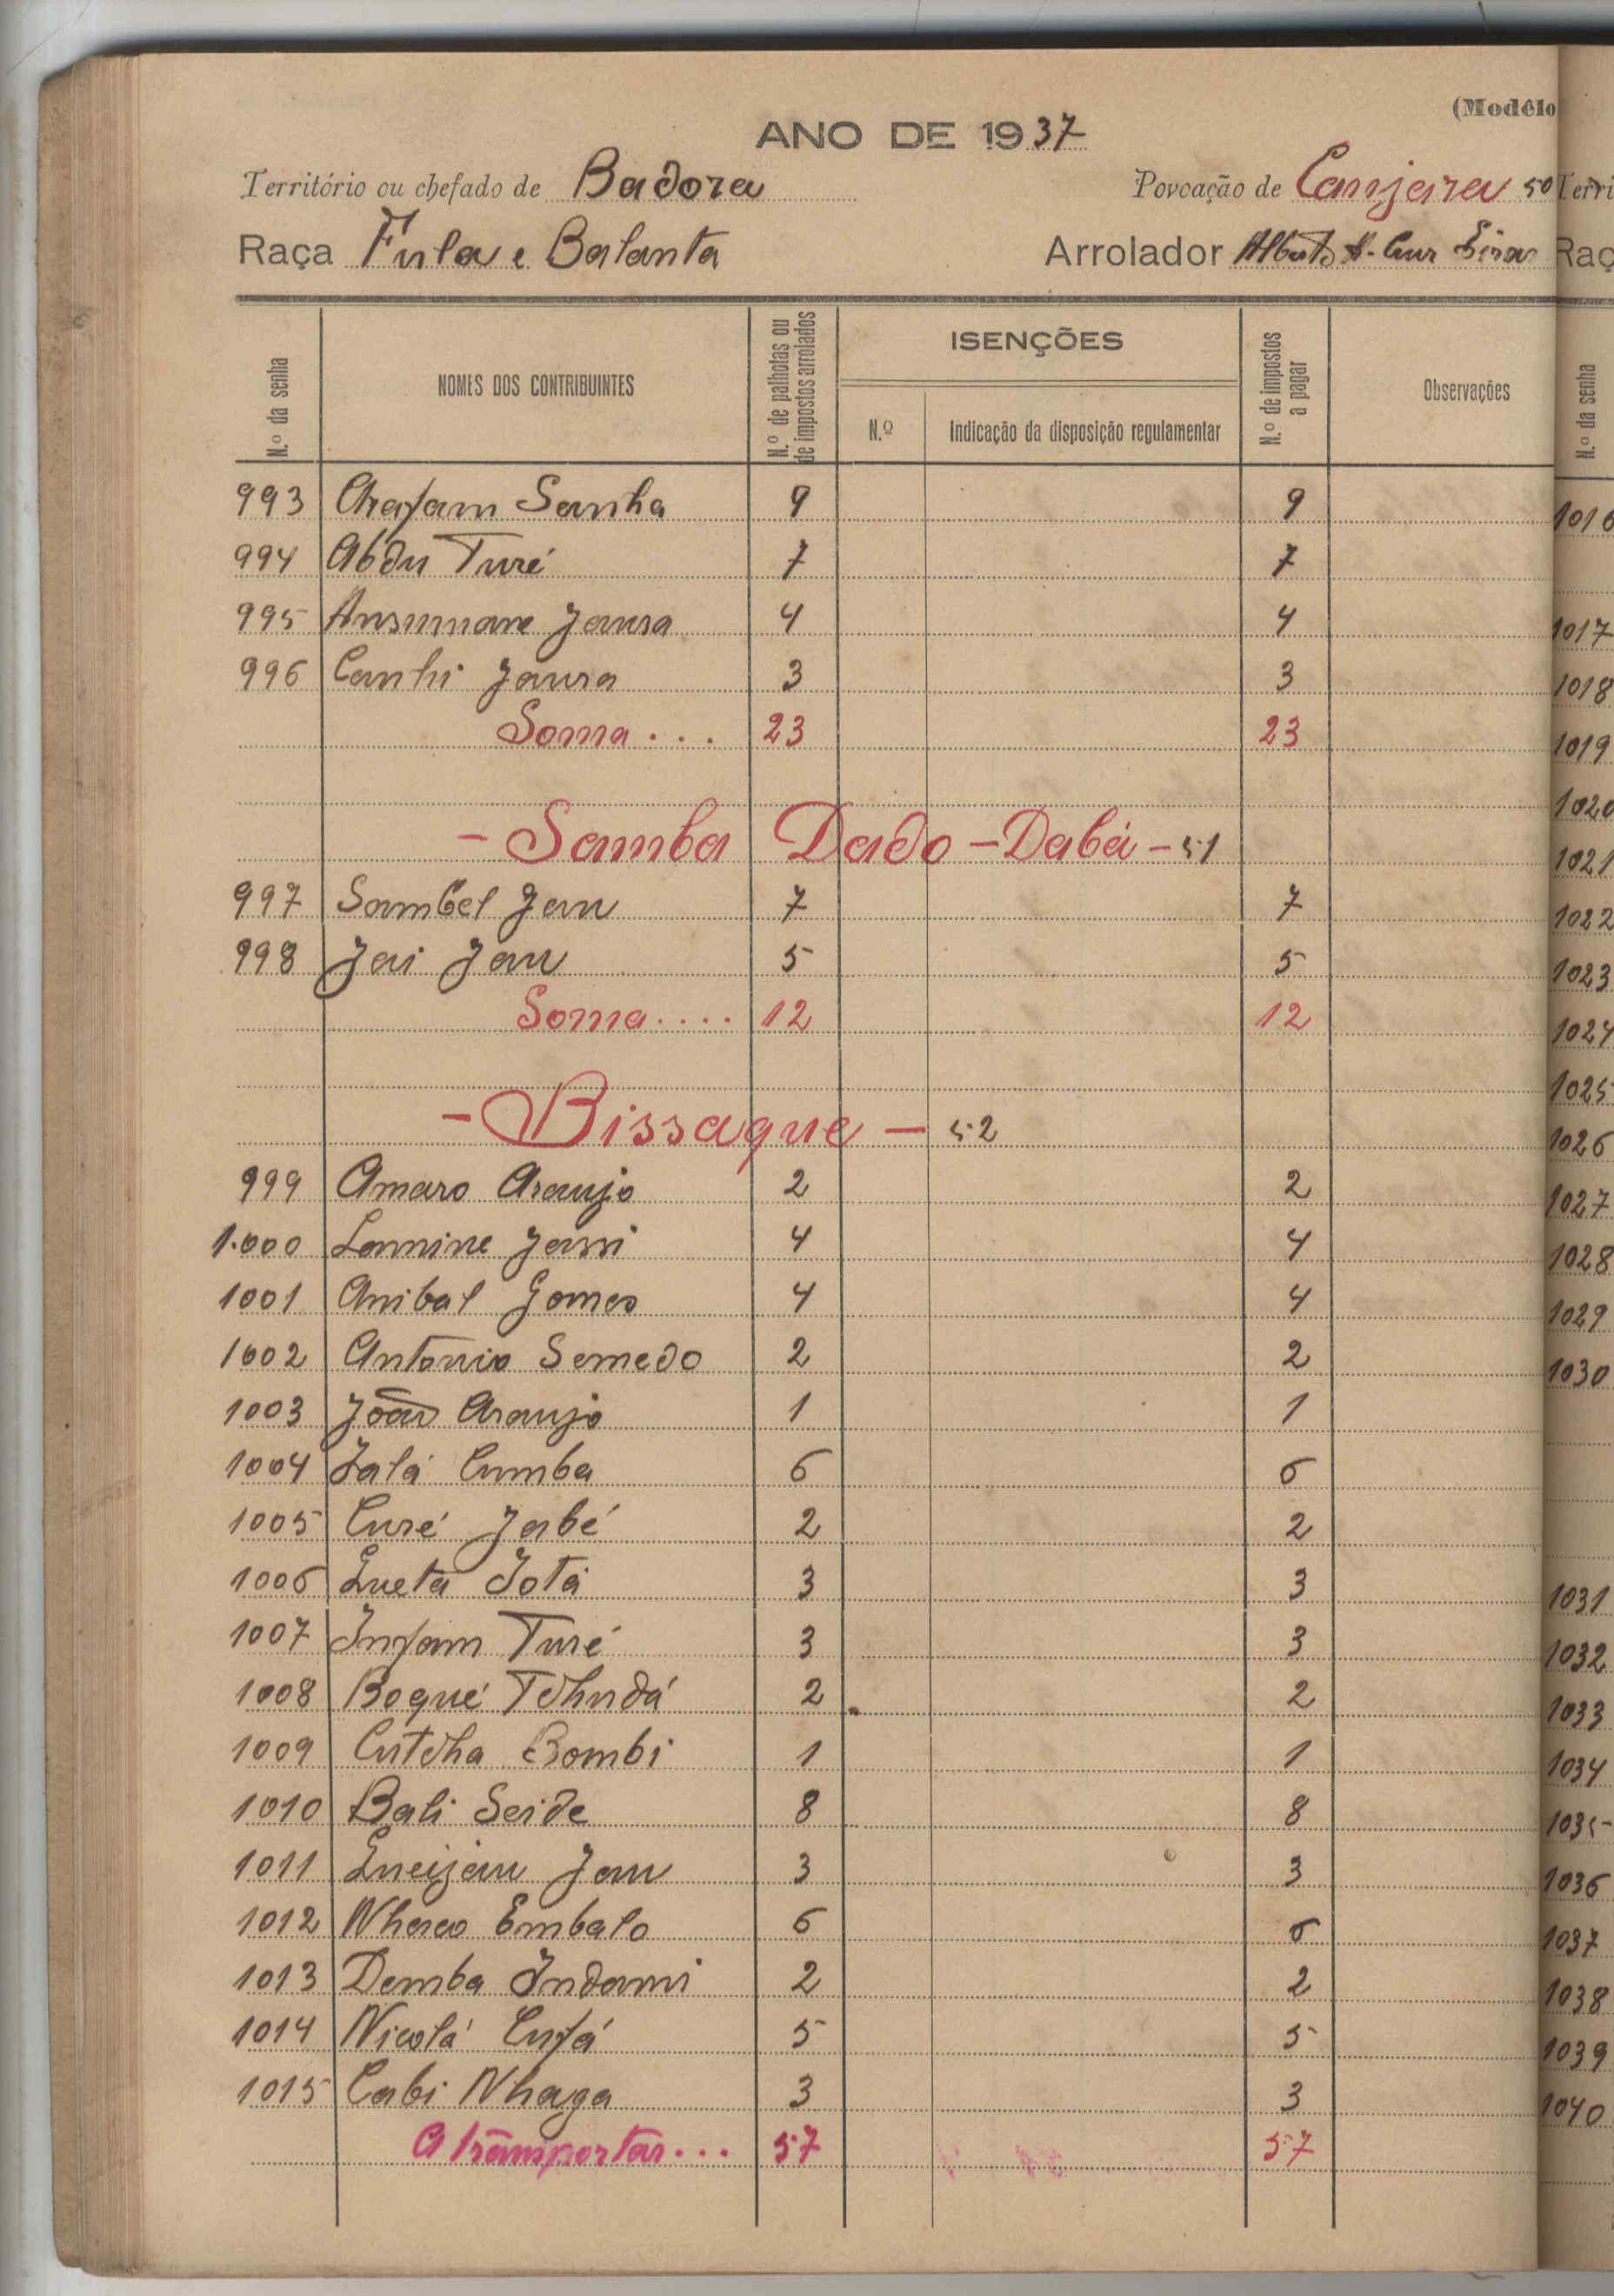 (Modêlo
ANO DE 1937
Território ou chefado de Badora Povoação de Canjara 50
Raça Fula e Balanta Arrolador Alberto A.
N.º da senha NOMES DOS CONTRIBUINTES N.º de palhotas ou de impostos arrolados ISENÇÕES N.º Indicação da disposição regulamentar N.º de impostos a pagar Observações
993 Arafam Sanha 9 9
994 Abdu Turé 7 7
995 Ansumane Jaura 4 4
996 Canhi Jaura 3 3
Soma... 23 23
- Samba Dado - Dabá - 51
997 Sambel Jau 7 7
998 Jai Jau 5 5
Soma.... 12 12
- Bissaque - 52
999 Amaro Araujo 2 2
1.000 Lamine Jassi 4 4
1001 Anibal Gomes 4 4
1002 Antonio Semedo 2 2
1003 João Araujo 1 1
1004 Jalá Cumba 6 6
1005 Curé Jabé 2 2
1006 Lueta Iotá 3 3
1007 Infam Turé 3 3
1008 Boqué Tchudá 2 2
1009 Cutcha Bombi 1 1
1010 Bali Seide 8 8
1011 Jau 3 3
1012 Embalo 6 6
1013 Demba Indami 2 2
1014 Nicolá Cufá 5 5
1015 Cabi Nhaga 3 3
A transportar... 57 57
Terri
Raç
N.º da senha
1016
1017
1018
1019
1020
1021
1022
1023
1024
1025
1026
1027
1028
1029
1030
1031
1032
1033
1034
1035
1036
1037
1038
1039
1040